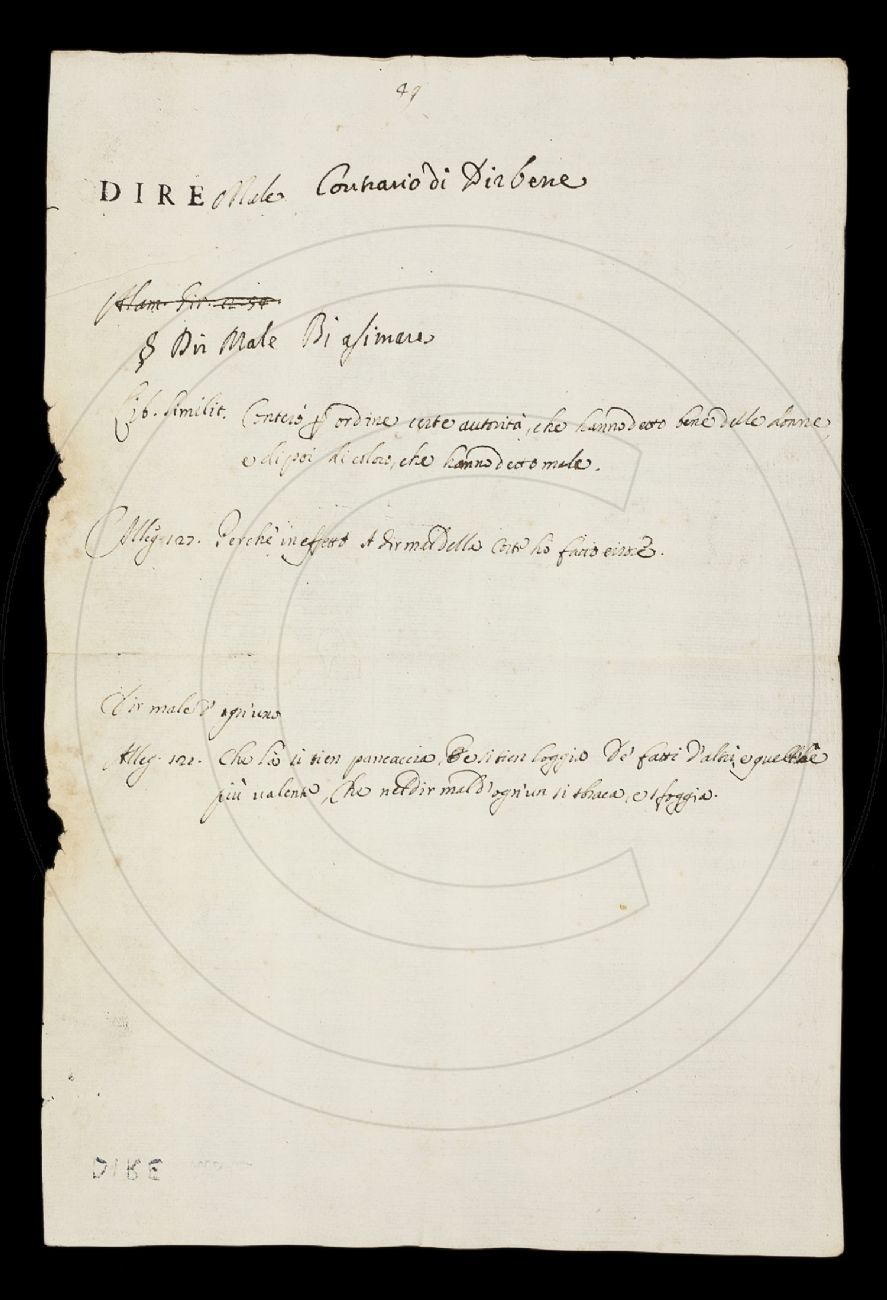 49
DIRE Male Contrario di Dir bene
Alam. Gir. 12. 54.
§ Dir Male Biasimare
Lib. Similit. Conterò p ordine certe autorità, che hanno detto bene delle donne,
e di poi di coloro, che hanno detto male.
Alleg. 127. Perchè in effetto A dir mal della Corte ho fatto
Dir male d'ogn'uno
Alleg. 121. Che la si tien pancaccia, e si tien loggia De' fatti d'altri, e quell'è
più valente, Che nel dir mal d'ogn'un si sbraca, e sfoggia.
DIRE